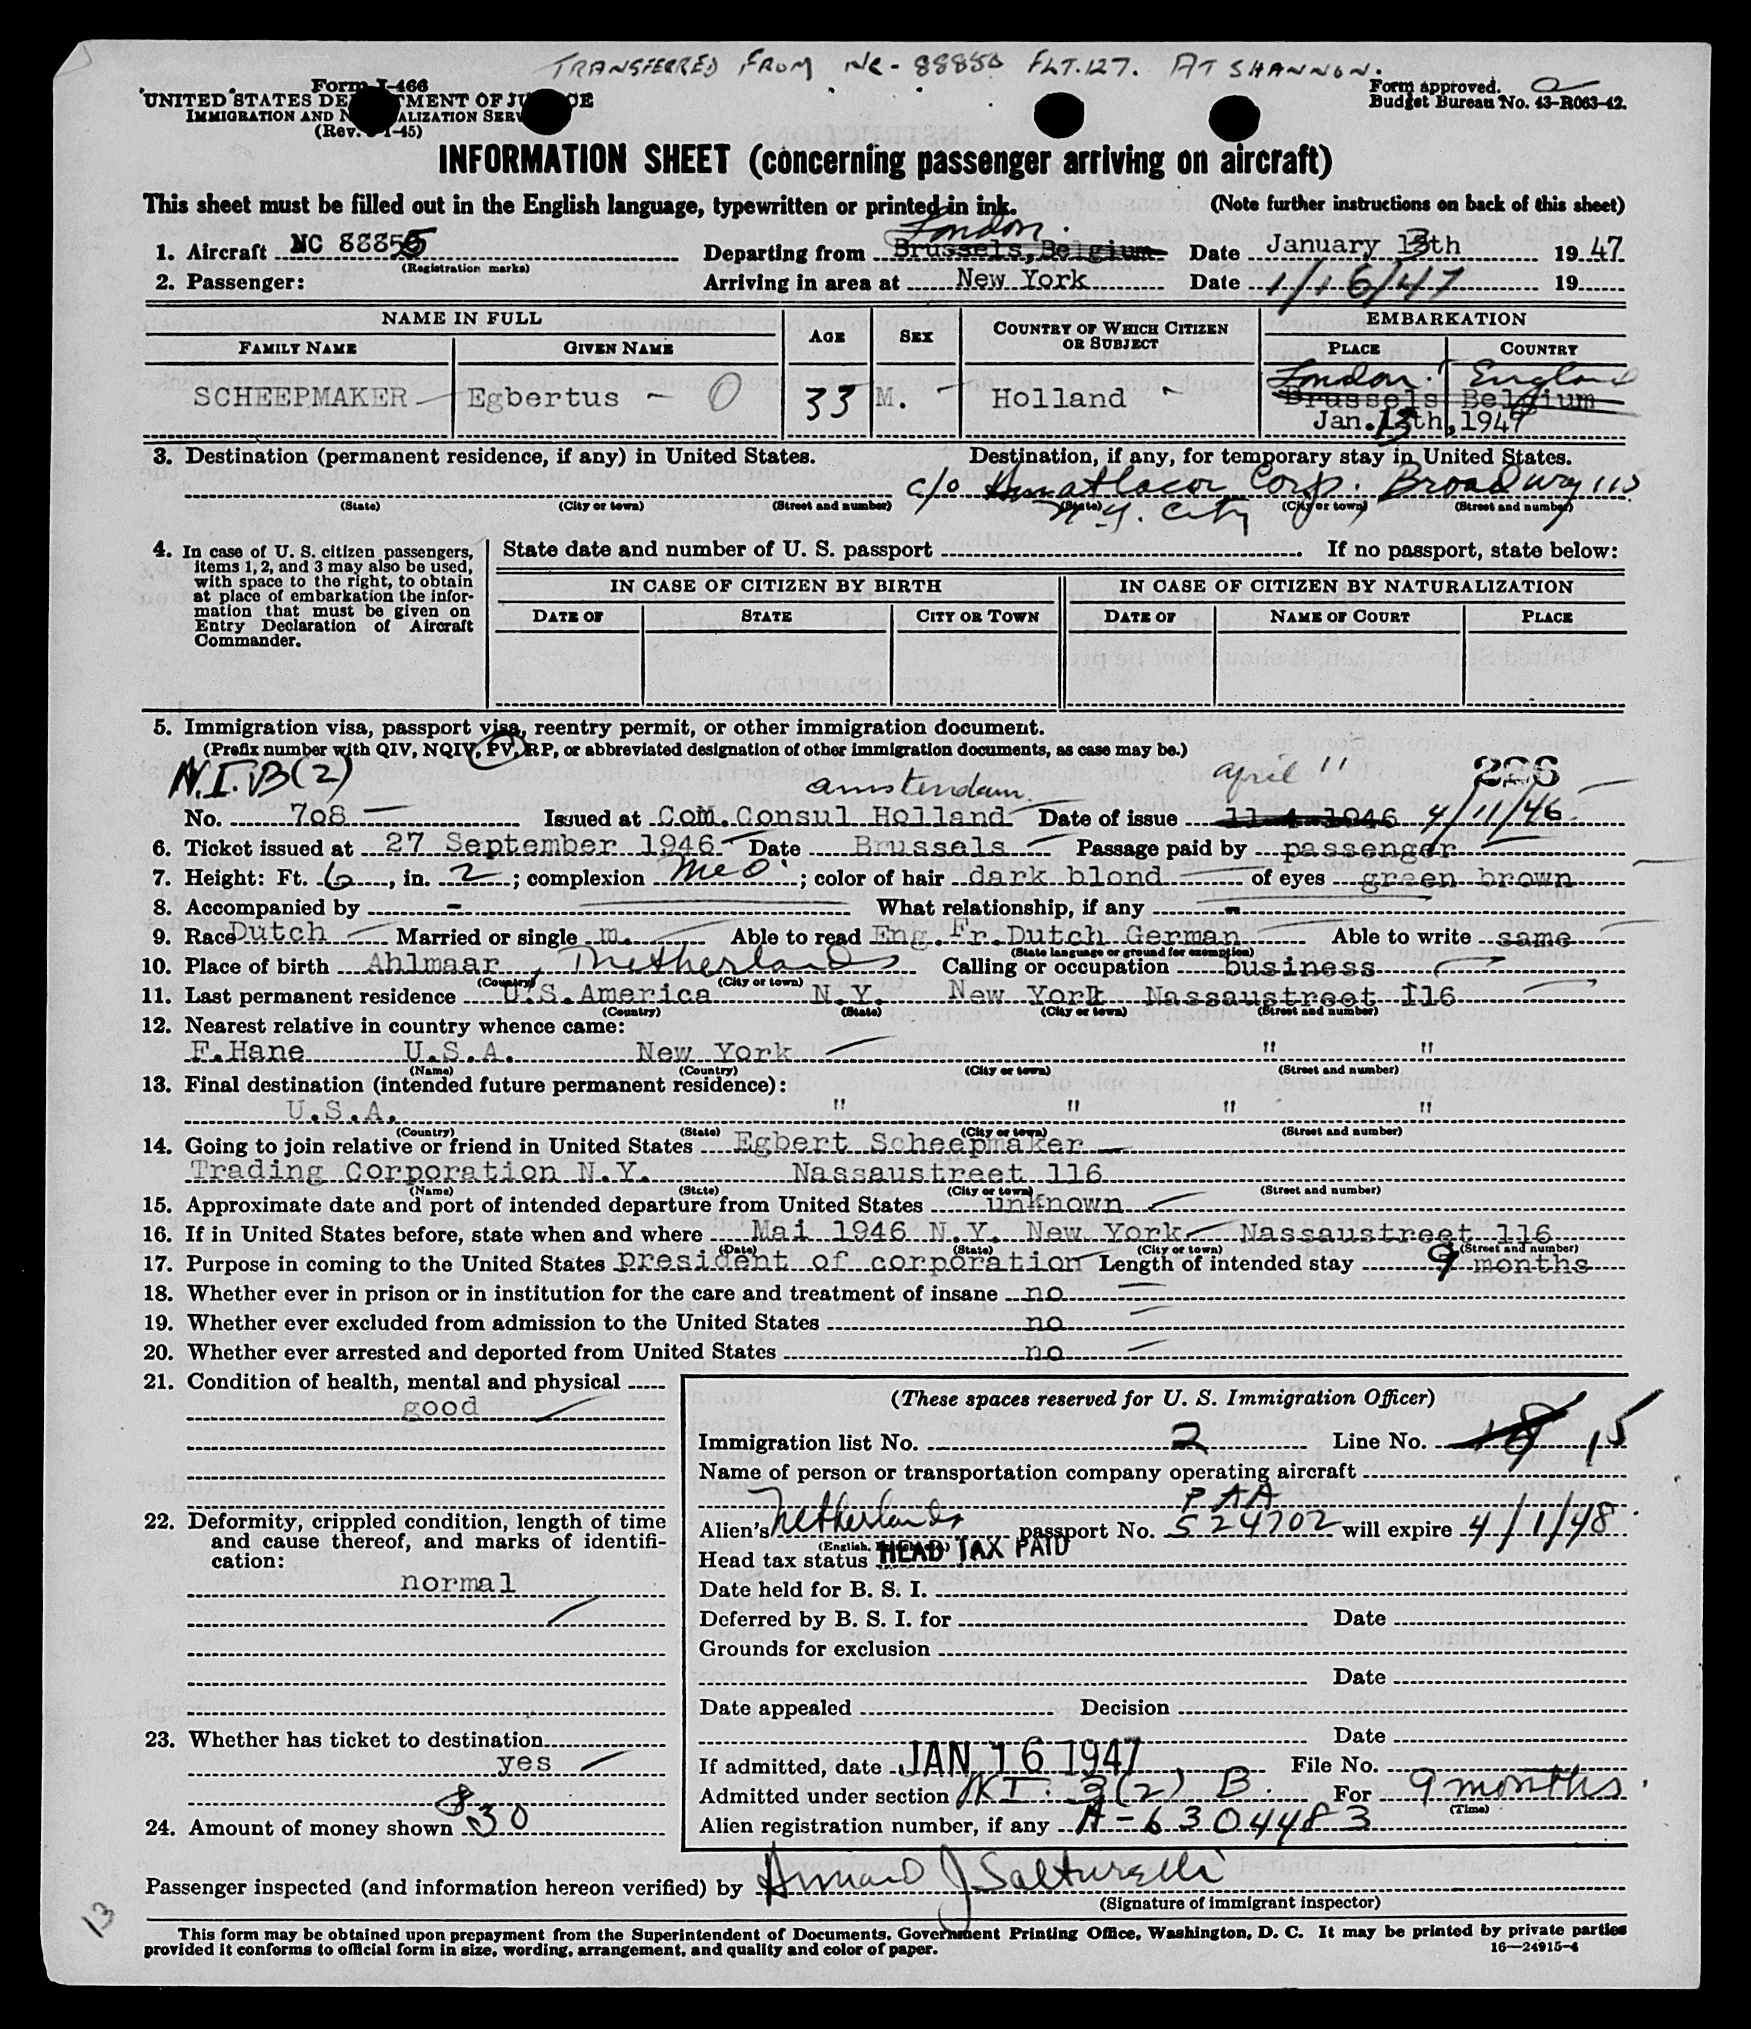 TRANSFERRED FROM NC-88850 FLT.127. AT SHANNON.
Form I-466
Form approved.
UNITED STATES DE MENT OF JU CE
Budget Bureau No. 43-R063-42.
IMMIGRATION AND N ALIZATION SERV
(Rev. 1-45)
INFORMATION SHEET (concerning passenger arriving on aircraft)
This sheet must be filled out in the English language, typewritten or printed in ink. (Note further instructions on back of this sheet)
London.
1. Aircraft NC 88855 Departing from Brussels, Belgium Date January 13th 1947
(Registration marks)
2. Passenger: Arriving in area at New York Date 1/16/47 19
NAME IN FULL AGE SEX COUNTRY OF WHICH CITIZEN OR SUBJECT EMBARKATION
FAMILY NAME GIVEN NAME PLACE COUNTRY
London England
SCHEEPMAKER Egbertus 33 M. Holland Brussels Belgium
Jan. 13th, 1947
3. Destination (permanent residence, if any) in United States. Destination, if any, for temporary stay in United States.
c/o Corp. Broadway 115
(State) (City or town) (Street and number) (State) (City or town) (Street and number)
N.Y. City
4. In case of U. S. citizen passengers, items 1, 2, and 3 may also be used, with space to the right, to obtain at place of embarkation the information that must be given on Entry Declaration of Aircraft Commander.
State date and number of U. S. passport If no passport, state below:
IN CASE OF CITIZEN BY BIRTH IN CASE OF CITIZEN BY NATURALIZATION
DATE OF STATE CITY OR TOWN DATE OF NAME OF COURT PLACE
5. Immigration visa, passport visa, reentry permit, or other immigration document.
(Prefix number with QIV, NQIV, PV, RP, or abbreviated designation of other immigration documents, as case may be.)
N.I.V.B(2) Amsterdam april 11 226
No. 708 Issued at Com. Consul Holland Date of issue 11-4-1946 4/11/46
6. Ticket issued at 27 September 1946 Date Brussels Passage paid by passenger
7. Height: Ft. 6, in. 2; complexion Med; color of hair dark blond of eyes green brown
8. Accompanied by - What relationship, if any -
9. Race Dutch Married or single m. Able to read Eng. Fr. Dutch German Able to write same
(State language or ground for exemption)
10. Place of birth Ahlmaar, Netherlands Calling or occupation business
(Country) (City or town)
11. Last permanent residence U.S.America N.Y. New York Nassaustreet 116
(Country) (State) (City or town) (Street and number)
12. Nearest relative in country whence came:
F.Hane U.S.A. New York " "
(Name) (Country) (City or town) (Street and number)
13. Final destination (intended future permanent residence):
U.S.A. " " " "
(Country) (State) (City or town) (Street and number)
14. Going to join relative or friend in United States Egbert Scheepmaker
Trading Corporation N.Y. Nassaustreet 116
(Name) (State) (City or town) (Street and number)
15. Approximate date and port of intended departure from United States unknown
16. If in United States before, state when and where Mai 1946 N.Y. New York Nassaustreet 116
(Date) (State) (City or town) (Street and number)
17. Purpose in coming to the United States president of corporation Length of intended stay 9 months
18. Whether ever in prison or in institution for the care and treatment of insane no
19. Whether ever excluded from admission to the United States no
20. Whether ever arrested and deported from United States no
21. Condition of health, mental and physical
good
22. Deformity, crippled condition, length of time and cause thereof, and marks of identification:
normal
23. Whether has ticket to destination
yes
24. Amount of money shown $30
(These spaces reserved for U. S. Immigration Officer)
Immigration list No. 2 Line No. 15
Name of person or transportation company operating aircraft
PAA
Alien's Netherlands passport No. 524702 will expire 4/1/48
Head tax status HEAD TAX PAID
Date held for B. S. I.
Deferred by B. S. I. for Date
Grounds for exclusion
Date
Date appealed Decision
Date
If admitted, date JAN 16 1947 File No.
Admitted under section 3(2) B. For 9 months.
(Time)
Alien registration number, if any A-6304483
Passenger inspected (and information hereon verified) by Armand J. Salturelli
(Signature of immigrant inspector)
13
This form may be obtained upon prepayment from the Superintendent of Documents, Government Printing Office, Washington, D. C. It may be printed by private parties
provided it conforms to official form in size, wording, arrangement, and quality and color of paper. 16—24915-4